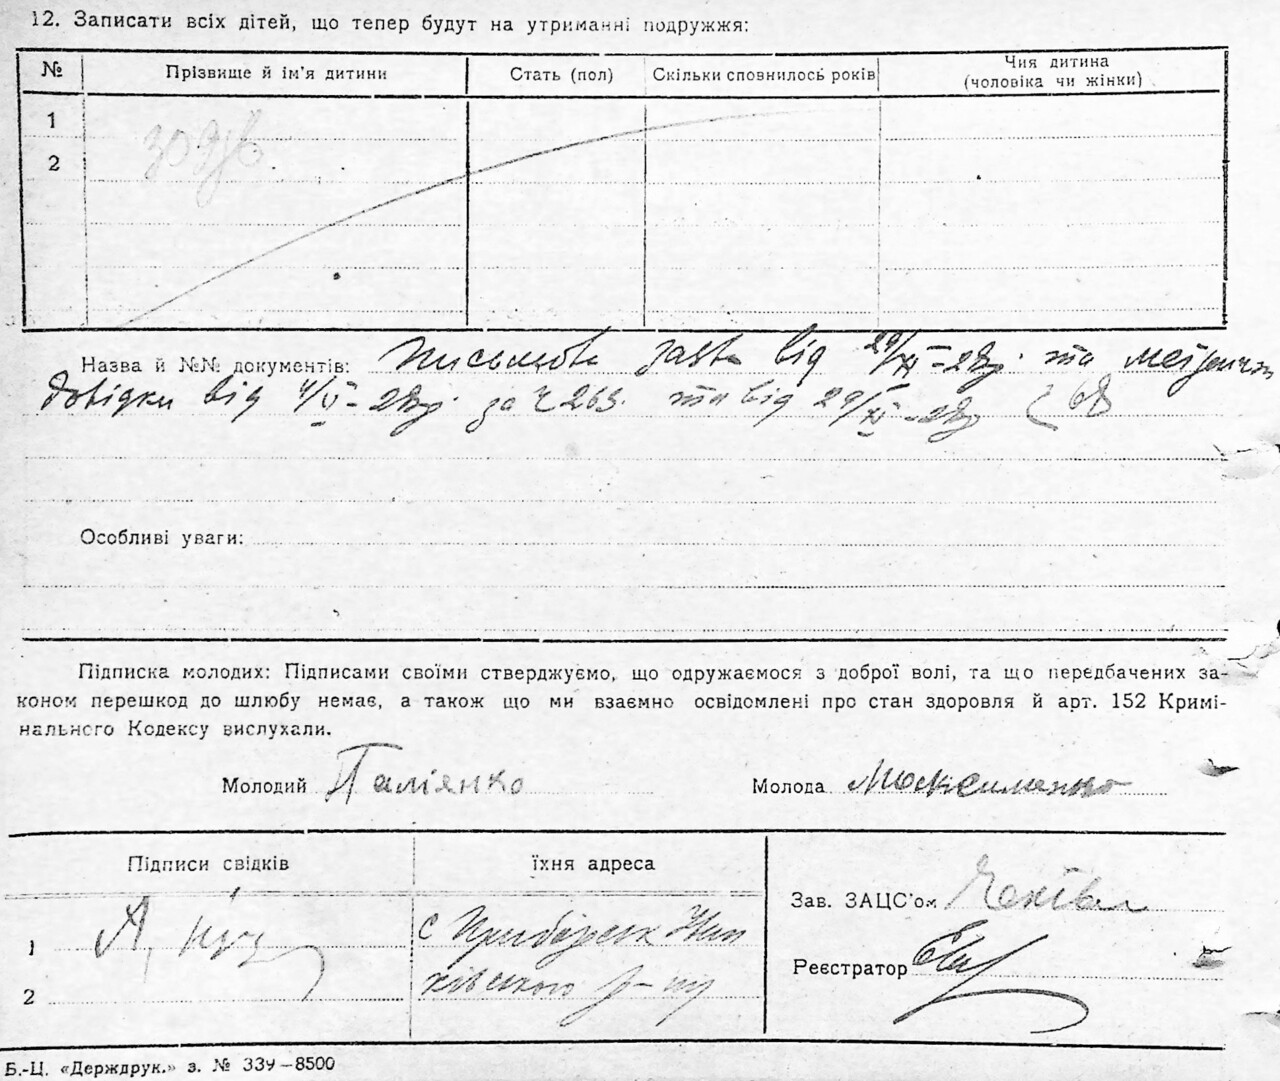 12. Записати всіх дітей, що тепер будут на утриманні подружжя:
№ Прізвище й ім'я дитини Стать (пол) Скільки сповнилось років Чия дитина
(чоловіка чи жінки)
1
2
Назва й №№ документів: письмова заява від 29/XI-28р. та метричн
довідки від 4/V-28р. за № 269. та від 29/XI-28р 68
Особливі уваги:
Підписка молодих: Підписами своїми стверджуємо, що одружаємося з доброї волі, та що передбачених за-
коном перешкод до шлюбу немає, а також що ми взаємно освідомлені про стан здоровля й арт. 152 Кримі-
нального Кодексу вислухали.
Молодий Паліянко Молода Максименко
Підписи свідків їхня адреса
Зав. ЗАЦС'ом
1 с Прибірськ
2 ківського р-ну
Реєстратор
Б.-Ц. «Держдрук.» з. № 339—8500